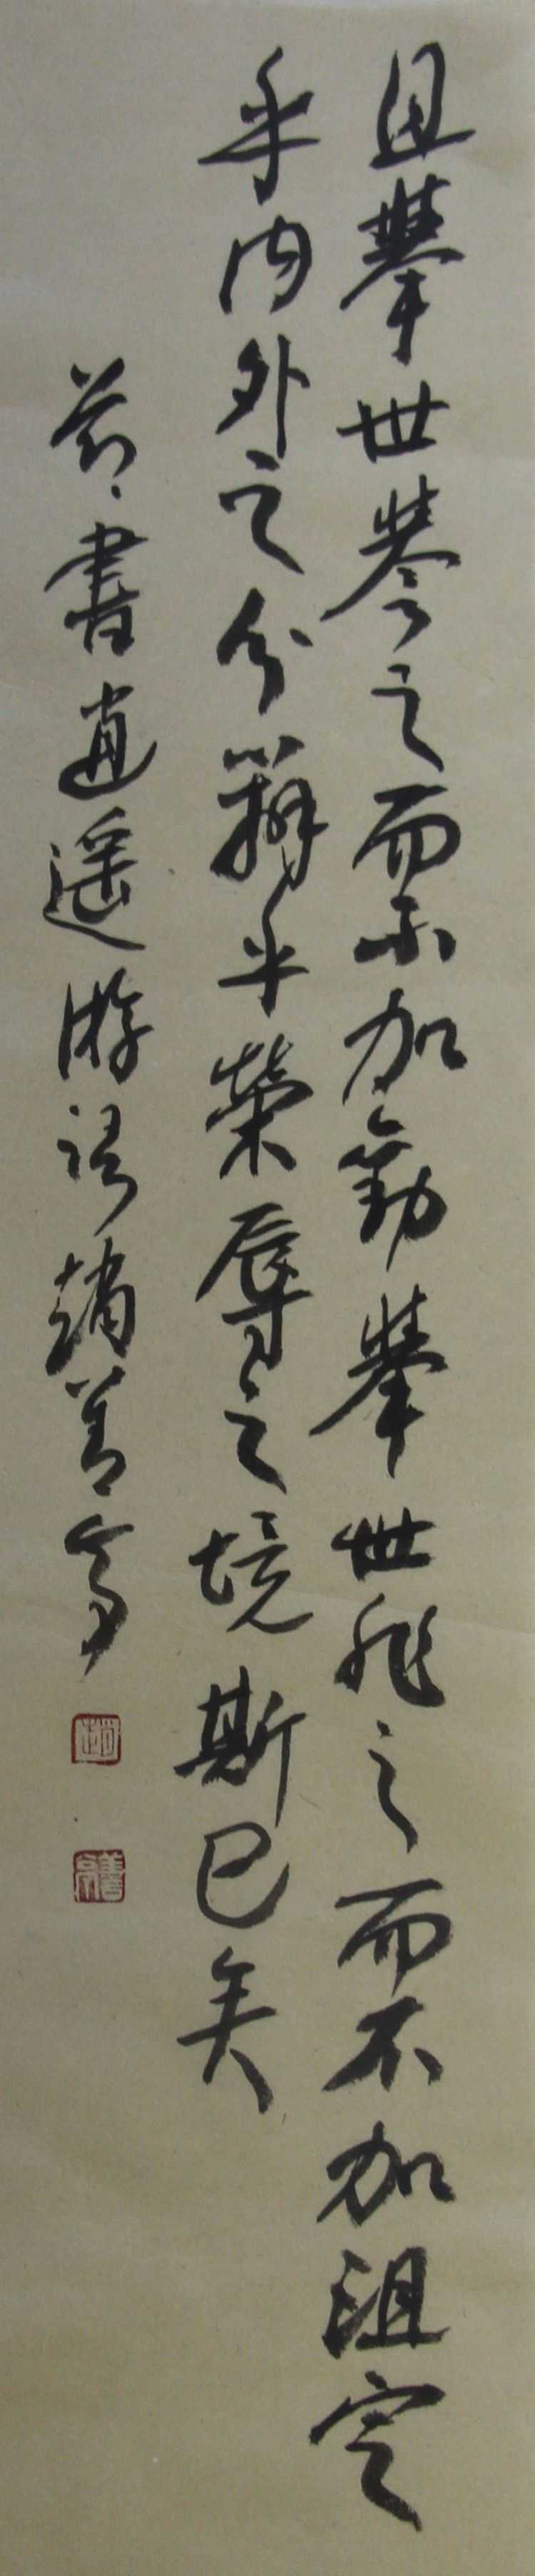 且舉世譽之而不加勸舉世非之而不加沮定
乎內外之分辯乎榮辱之境斯已矣
節書逍遙游語趙善